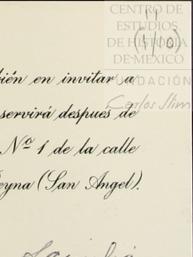 CENTRO DE
ESTUDIOS
DE HISTORIA
DE MEXICO
FUNDACIÓN
Carlos Slim
bién en invitar a
servirá despues de
Nº 1 de la calle
eyna (San Angel).